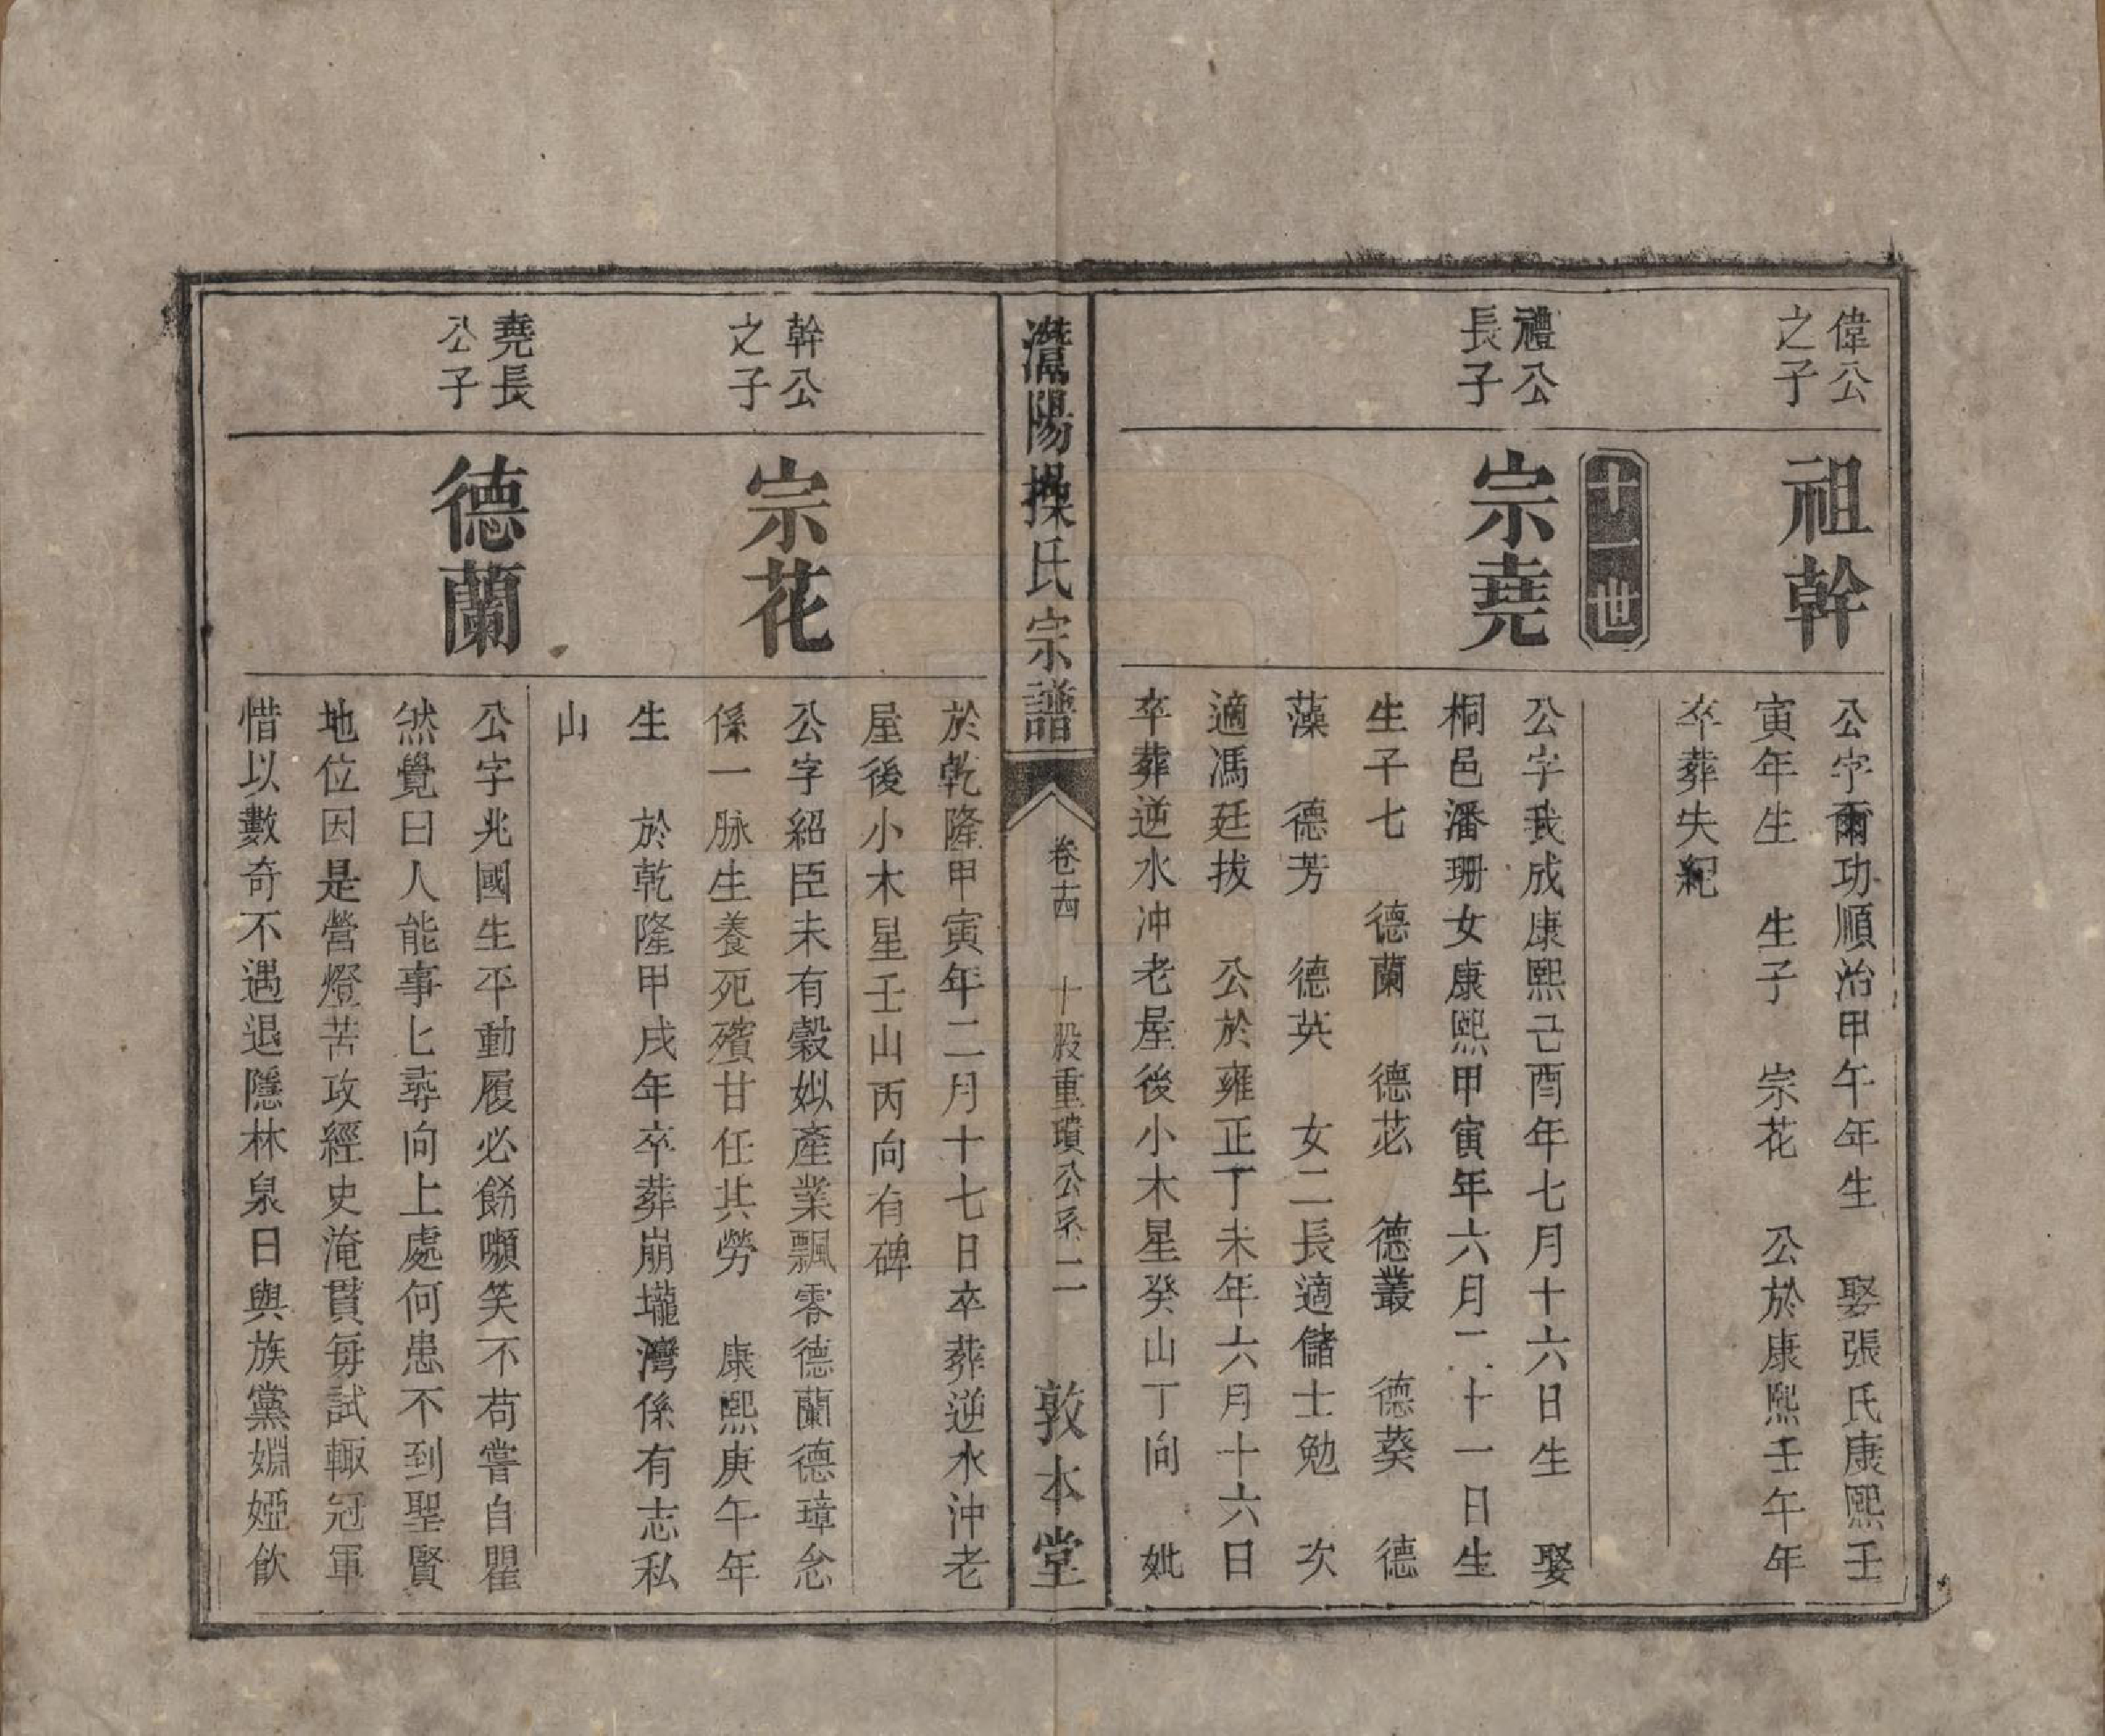 偉公
之子
祖幹
公字爾功順治甲午年生　娶張氏康熙壬
寅年生　生子　宗花　公於康熙壬午年
卒葬失紀
十一世
禮公
長子
宗堯
公字我成康熙己酉年七月十六日生　娶
桐邑潘珊女康熙甲寅年六月二十一日生
生子七　德蘭　德苾　德叢　德葵　德
藻　德芳　德英　女二長適儲士勉　次
適馮廷拔　公於雍正丁未年六月十六日
卒葬逆水冲老屋後小木星癸山丁向　妣
灊陽操氏宗譜
卷十四
十股重璝公系二
敦本堂
於乾隆甲寅年二月十七日卒葬逆水沖老
屋後小木星壬山丙向有碑
幹公
之子
宗花
公字紹臣未有穀姒產業飄零德蘭德璋忿
係一脉生養死殯甘任其勞　康熙庚午年
生　於乾隆甲戌年卒葬崩壠灣係有志私
山
堯長
公子
德蘭
公字兆國生平動履必飭嚬笑不苟嘗自瞿
然覺曰人能事匕尋向上處何患不到聖賢
地位因是營燈苦攻經史淹貫每試輙冠軍
惜以數奇不遇退隱林泉日與族黨婣婭飲